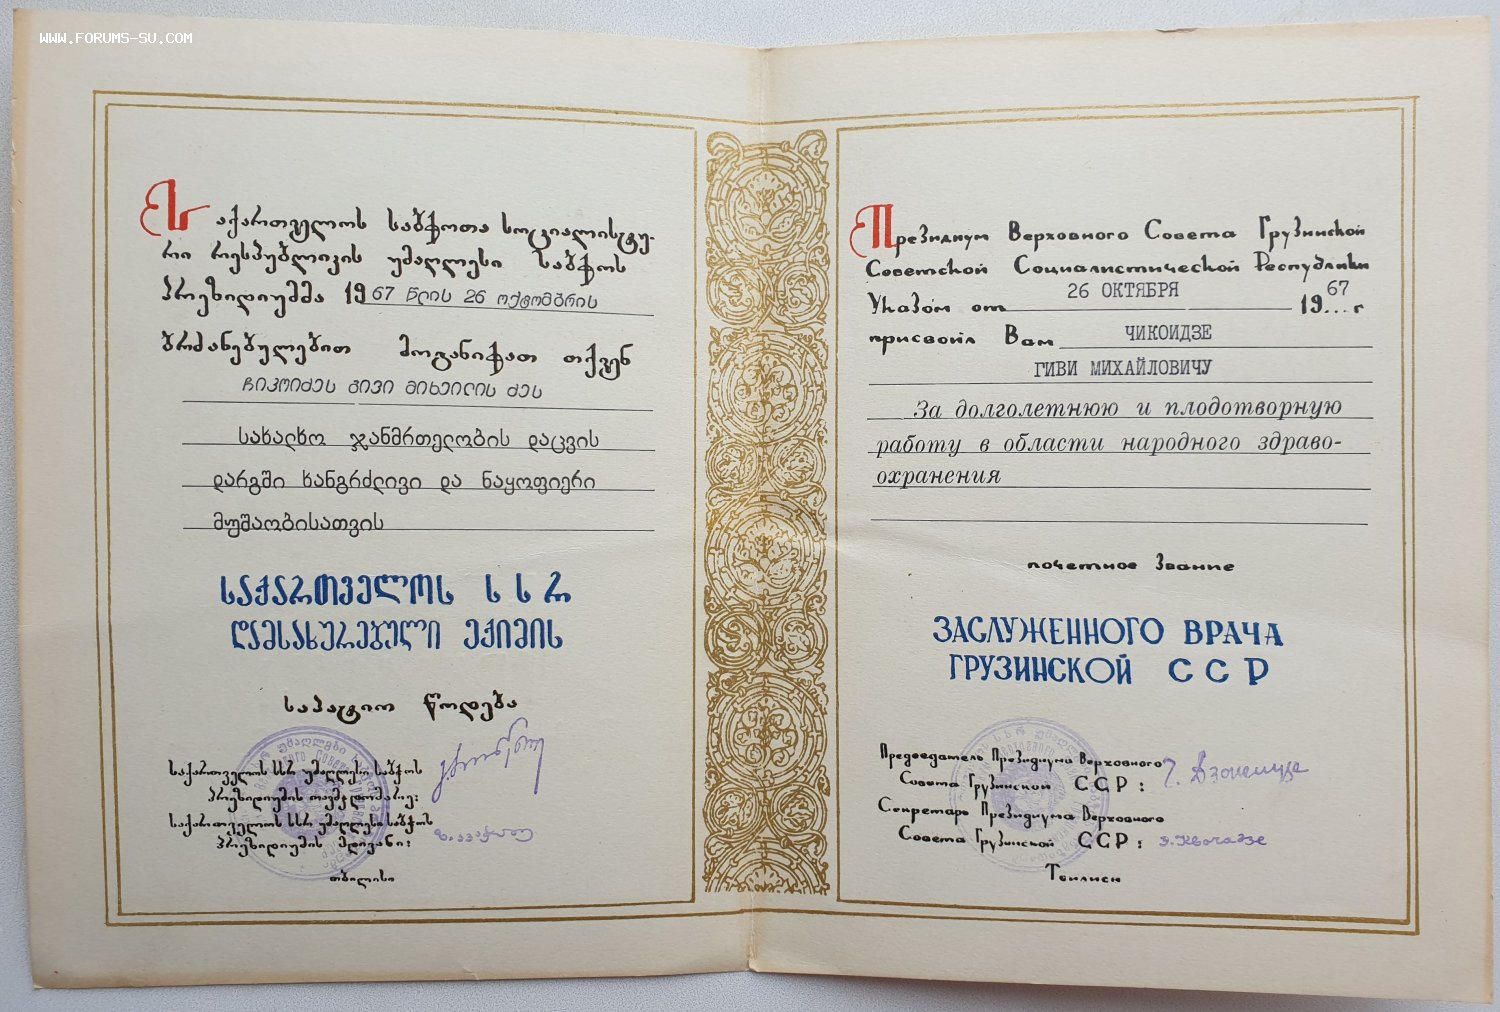 WWW.FORUMS-SU.COM
საქართველოს საბჭოთა სოციალისტუ-
რი რესპუბლიკის უმაღლესი საბჭოს
პრეზიდიუმმა 1967 წლის 26 ოქტომბრის
ბრძანებულებით მოგანიჭათ თქვენ
ჩიკოიძეს გივი მიხეილის ძეს
სახალხო ჯანმრთელობის დაცვის
დარგში ხანგრძლივი და ნაყოფიერი
მუშაობისათვის
საქართველოს ს ს რ
დამსახურებული ექიმის
საპატიო წოდება
საქართველოს სსრ უმაღლესი საბჭოს
პრეზიდიუმის თავმჯდომარე:
საქართველოს სსრ უმაღლესი საბჭოს
პრეზიდიუმის მდივანი:
თბილისი
Президиум Верховного Совета Грузинской
Советской Социалистической Республики
Указом от 26 ОКТЯБРЯ 1967 г
присвоил Вам ЧИКОИДЗЕ
ГИВИ МИХАЙЛОВИЧУ
За долголетнюю и плодотворную
работу в области народного здраво-
охранения
почетное звание
ЗАСЛУЖЕННОГО ВРАЧА
ГРУЗИНСКОЙ С С Р
Председатель Президиума Верховного
Совета Грузинской ССР: Г. Дзоценидзе
Секретарь Президиума Верховного
Совета Грузинской ССР: З. Квачадзе
Тбилиси